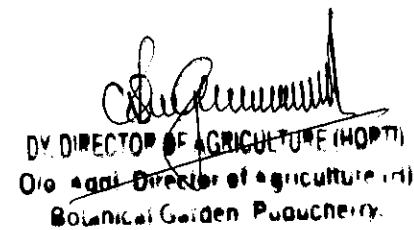 DY. DIRECTOR OF AGRICULTURE (HORT)
O/o Addl Director of Agriculture (H)
Botanical Garden Puducherry.